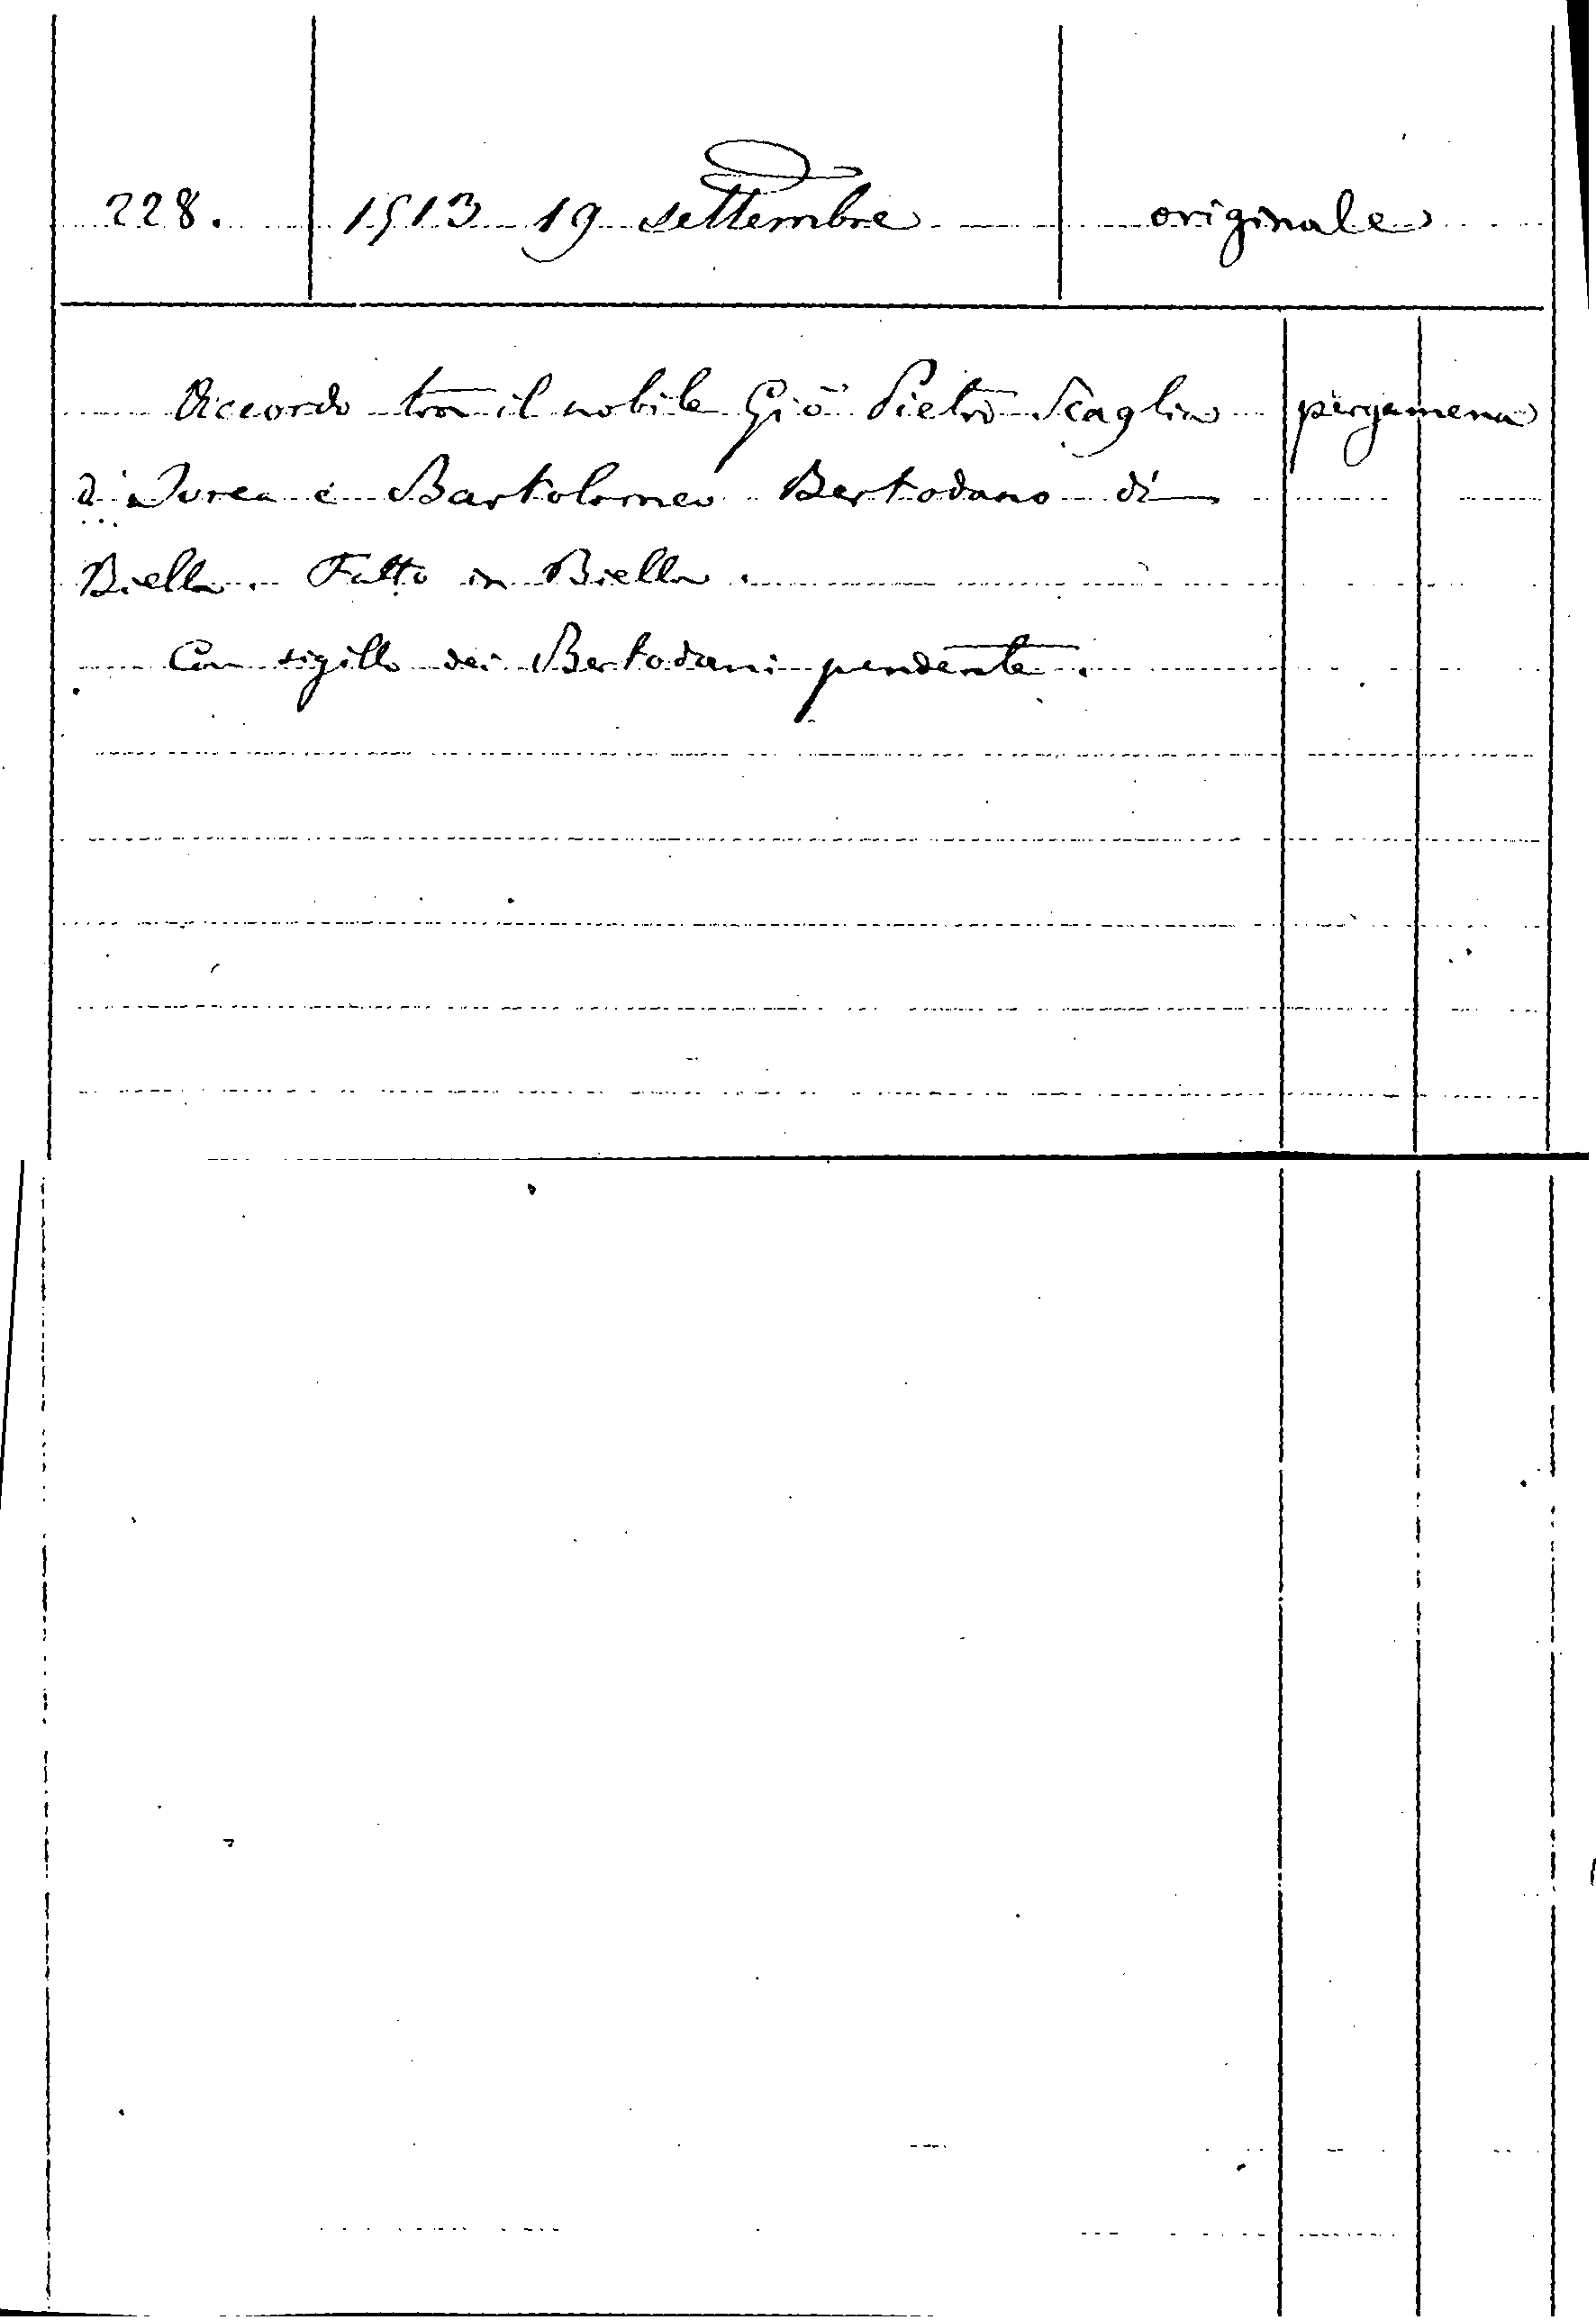 228. 1513 19 settembre originale
Accordo tra il nobile Gió Pietro Scaglia pergamena
d'Ivrea e Bartolomeo Bertodano di
Biella. Fatto in Biella.
Con sigillo dei Bertodani pendente.